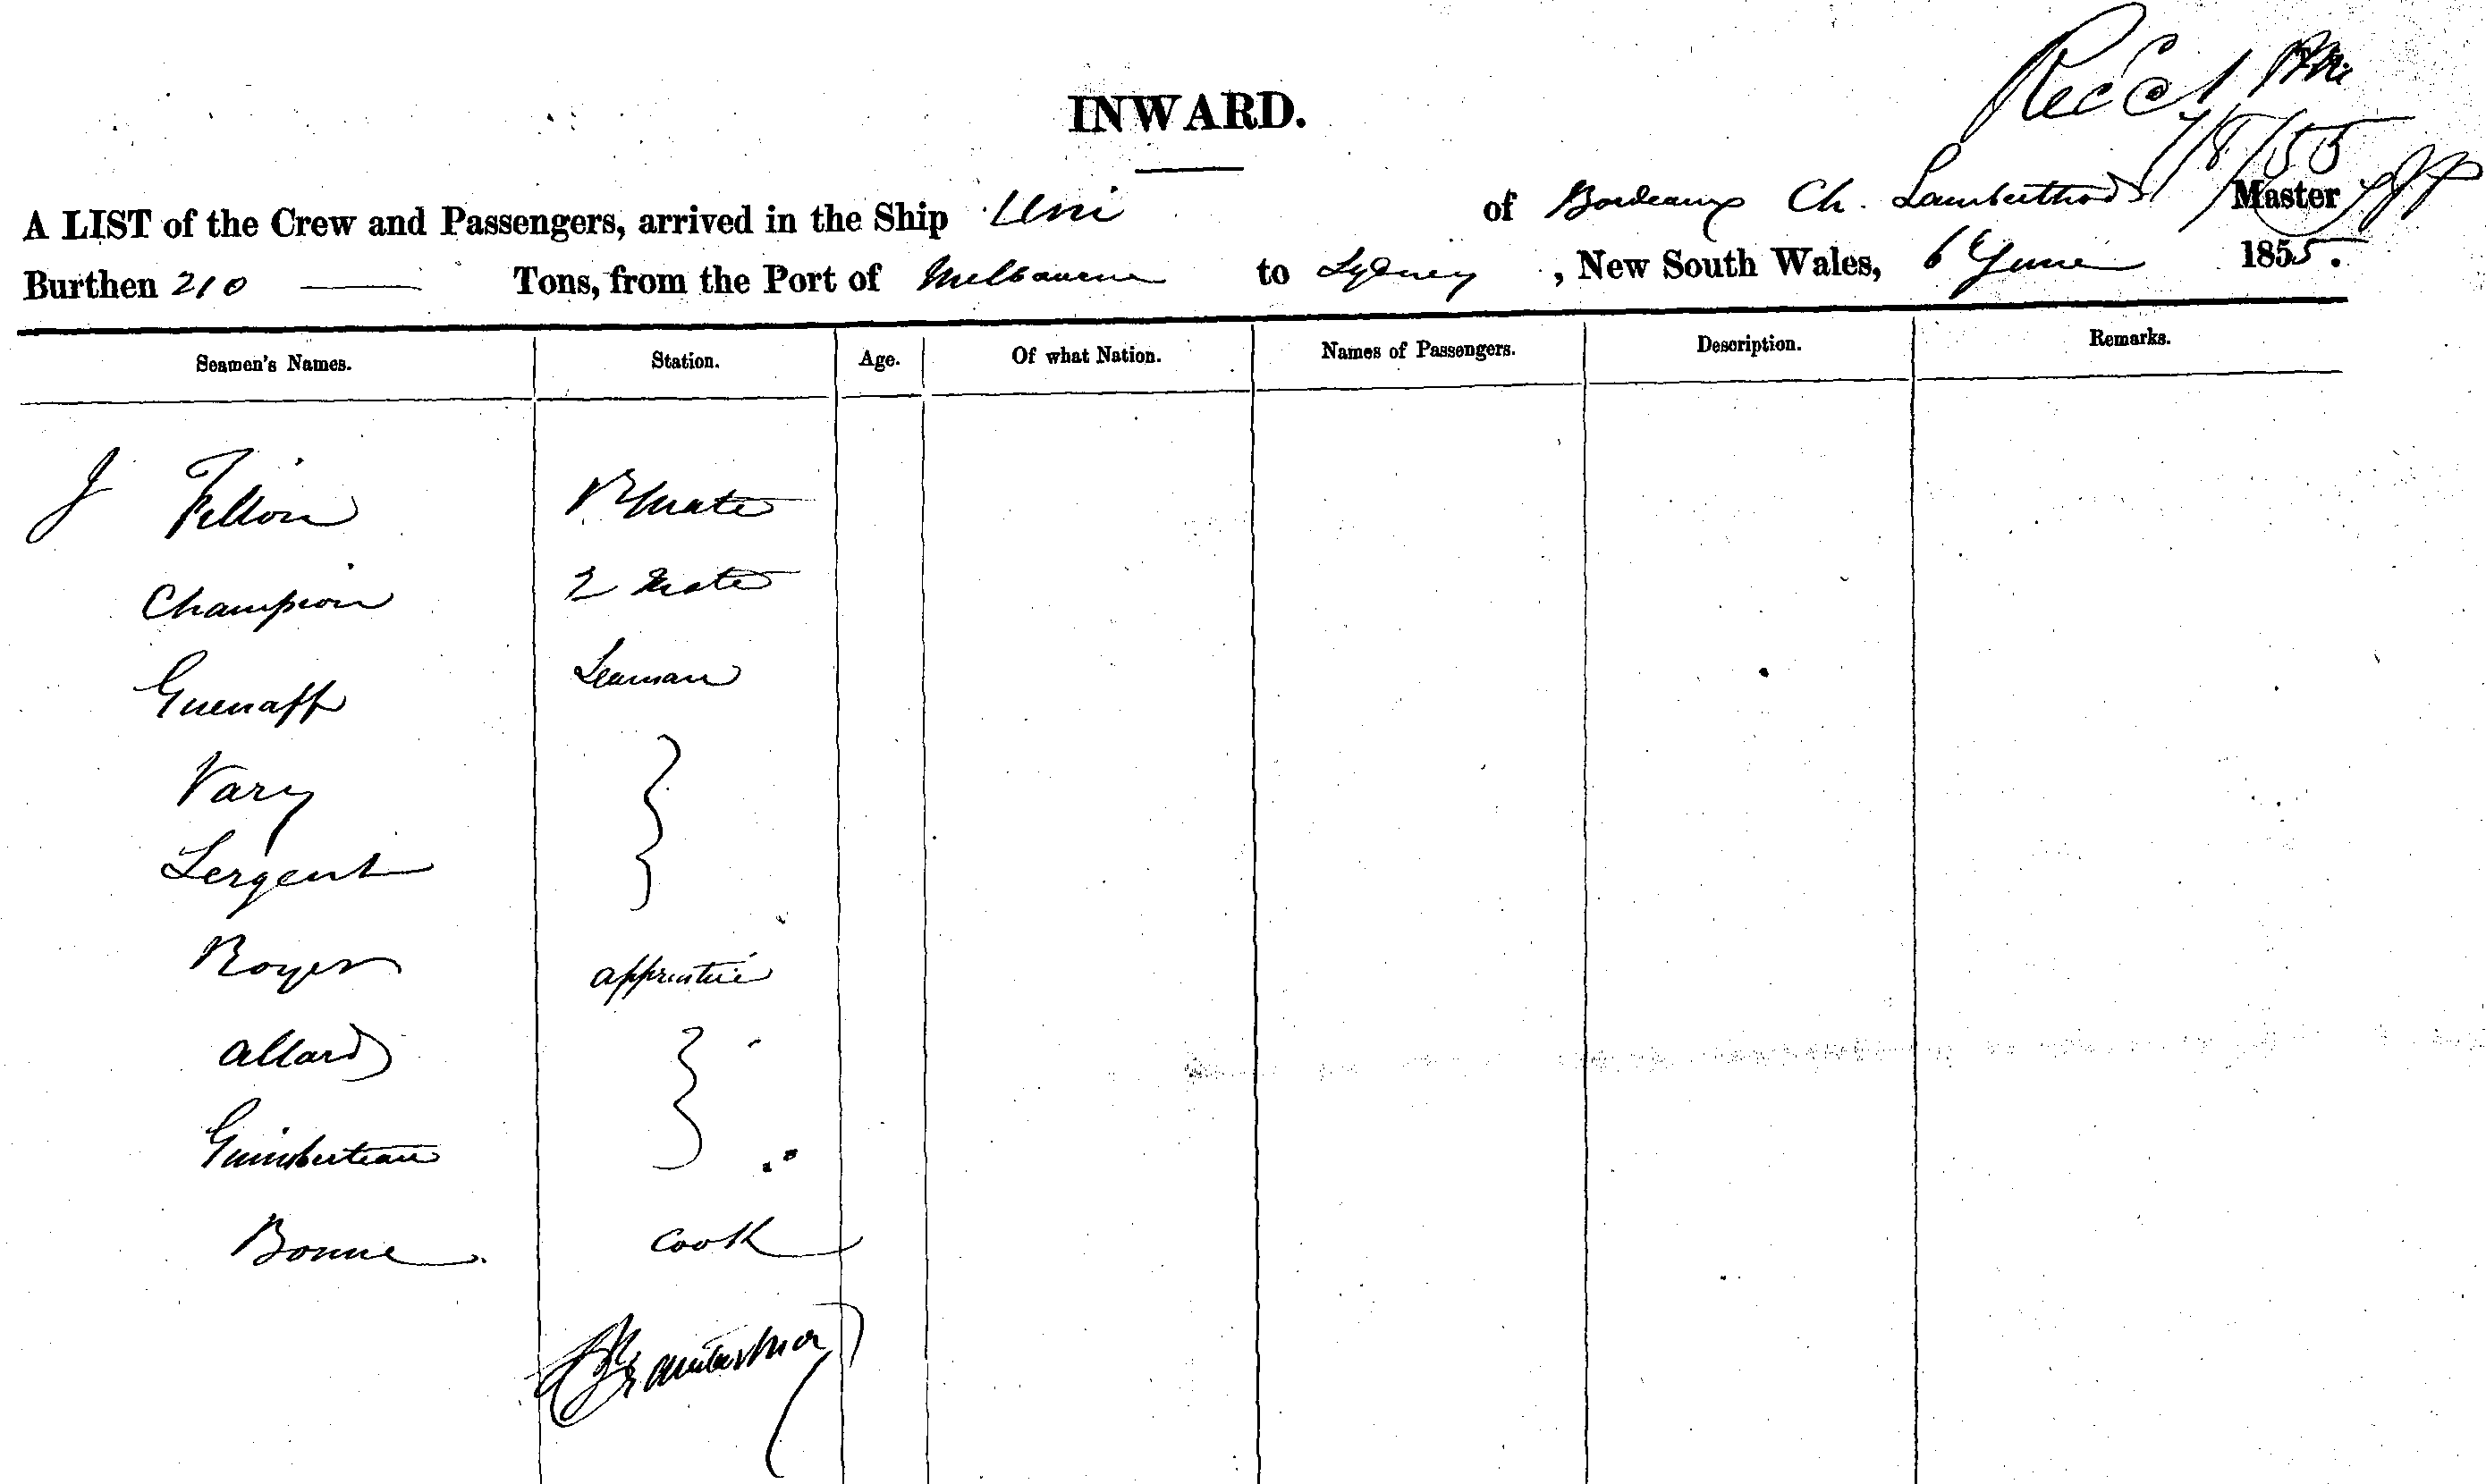 Rec'd
7/8/55
INWARD.
A LIST of the Crew and Passengers, arrived in the Ship Uni of Bordeaux Ch. Lamberthod Master
Burthen 210 Tons, from the Port of Melbourne to Sydney, New South Wales, 6 June 1855.
Seamen's Names. Station. Age. Of what Nation. Names of Passengers. Description. Remarks.
J Fillon Mate
Champion 2 Mate
Guenaff Seaman
Vary
Sergent
Royer apprentice
Allard
Guimberteau
Bonne cook